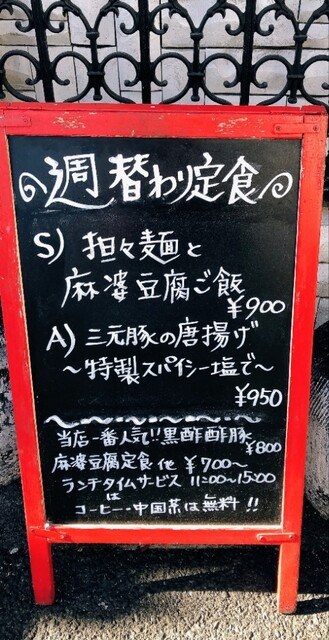 週替わり定食
S) 担々麺と
麻婆豆腐ご飯
¥900
A) 三元豚の唐揚げ
～特製スパイシー塩で～
¥950
当店一番人気!!黒酢酢豚
¥800
麻婆豆腐定食 他 ¥700～
ランチタイムサービス 11:00～15:00
は
コーヒー・中国茶は無料!!